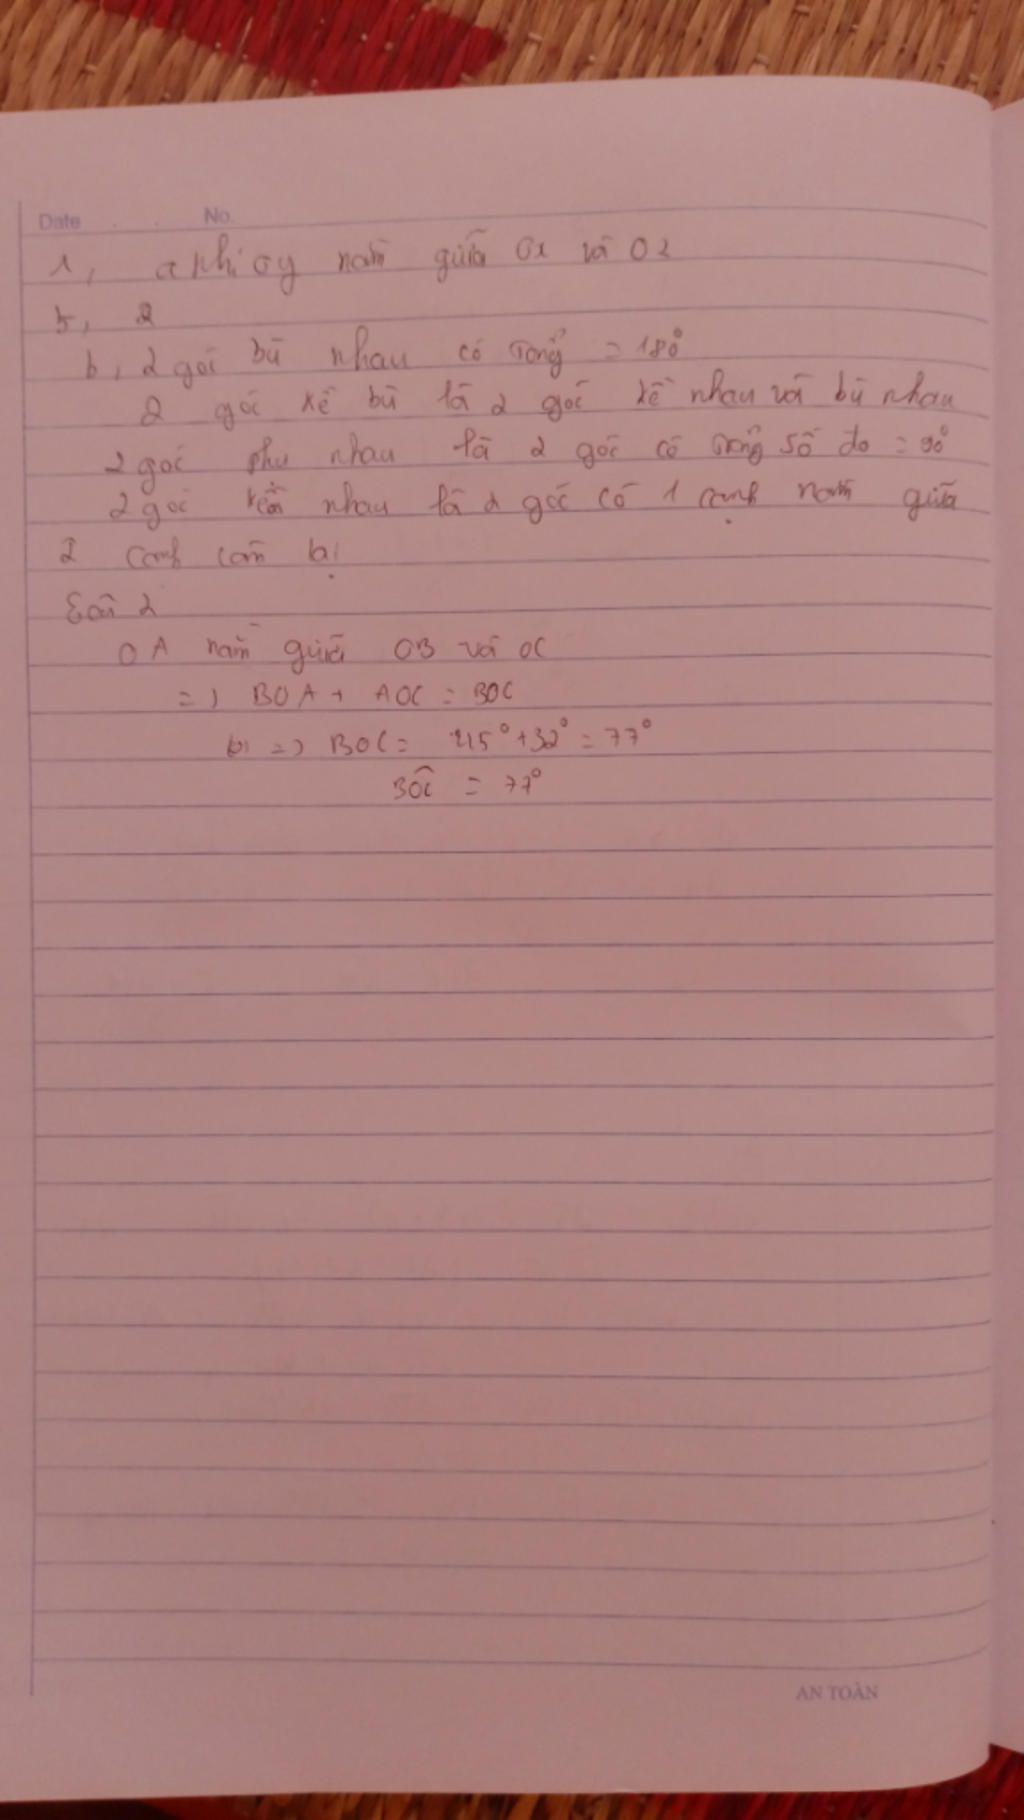 Date No.
1, a khi oy nằm giữa Ox và Oz
b, 2
b, 2 góc bù nhau có tổng = 180°
2 góc kề bù là 2 góc kề nhau và bù nhau
2 góc phụ nhau là 2 góc có tổng số đo = 90°
2 góc nhau là 2 góc có 1 cạnh nằm giữa
2 cạnh còn lại
Câu 2
OA nằm giữa OB và OC
=) BOA + AOC = BOC
b, =) BOC = 45° + 32° = 77°
BOC = 77°
AN TOÀN